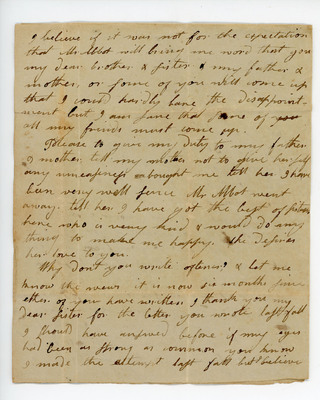 I believe if it was not for the expectation
that Mr Abbot will bring me word that you
my dear brother & sister & my father &
mother, or some of you will come up
that I could hardly bare the disappoint-
ment but I am sure that some of you
all my friends must come up.
Please to give my duty to my father
& mother, tell my mother not to give herself
any uneasiness about me tell her I have
been very well since Mr Abbot went
away. tell her I have got the best of sisters
here who is very kind & would do any
thing to make me happy. she desires
her love to you.
Why dont you write oftener & let me
know the news it is now six months since
either of you have written, I thank you my
dear sister for the letter you wrote last fall
I should have answerd before if my eyes
had been as strong as common you know
I made the attempt last fall but believe